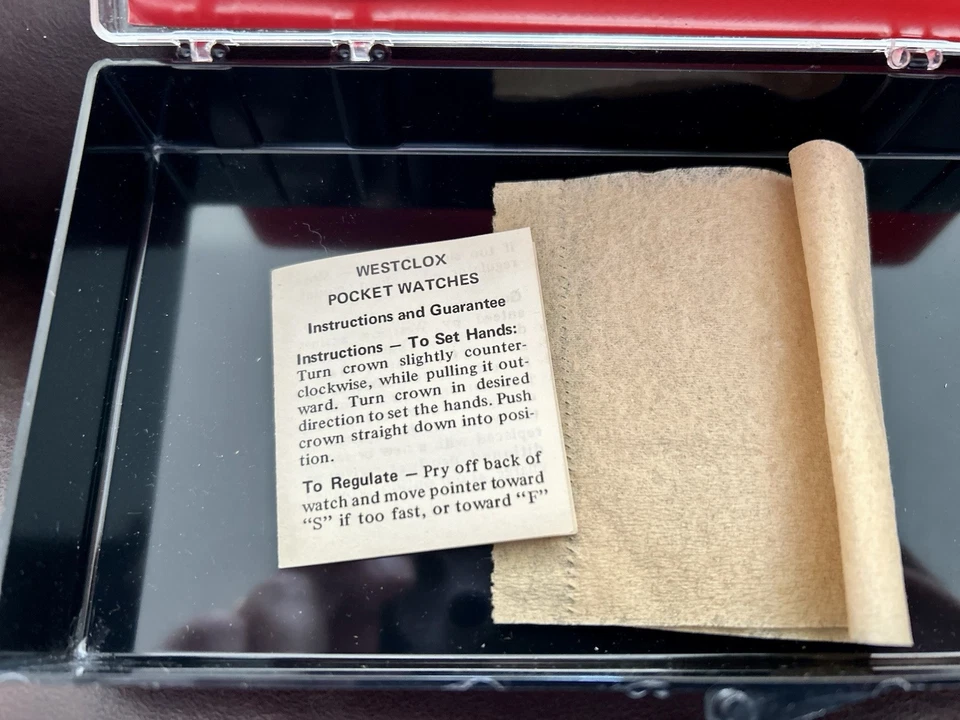 WESTCLOX
POCKET WATCHES
Instructions and Guarantee
Instructions — To Set Hands:
Turn crown slightly counter-
clockwise, while pulling it out-
ward. Turn crown in desired
direction to set the hands. Push
crown straight down into posi-
tion.
To Regulate — Pry off back of
watch and move pointer toward
“S” if too fast, or toward “F”